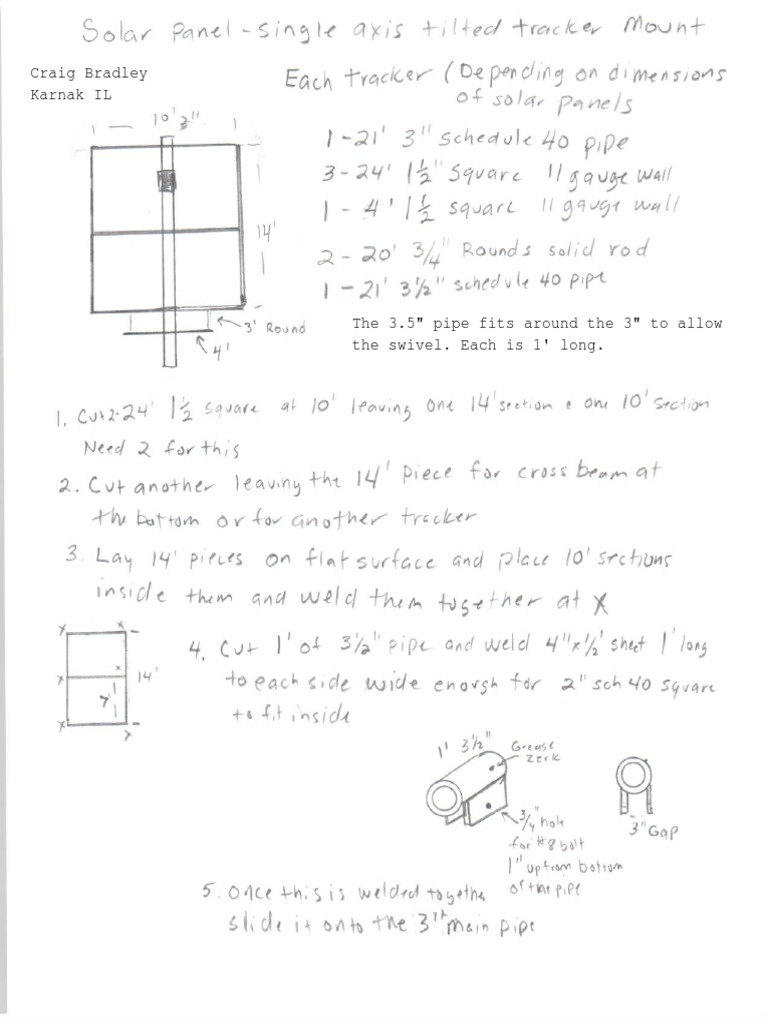 Solar Panel - single axis tilted tracker Mount
Craig Bradley
Karnak IL
Each tracker (Depending on dimensions
of solar panels
10' 3"
1-21' 3" schedule 40 pipe
3-24' 1 1/2" Square 11 gauge wall
1 - 4' 1 1/2 square 11 gauge wall
14'
2 - 20' 3/4" Rounds solid rod
1 - 21' 3 1/2" schedule 40 pipe
3' Round
4'
The 3.5" pipe fits around the 3" to allow
the swivel. Each is 1' long.
1. Cut 2-24' 1 1/2 square at 10' leaving one 14' section & one 10' section
Need 2 for this
2. Cut another leaving the 14' piece for cross beam at
the bottom or for another tracker
3. Lay 14' pieces on flat surface and place 10' sections
inside them and weld them together at X
x x
x
14'
7'
x x
4. Cut 1' of 3 1/2" pipe and weld 4"x1/2' sheet 1' long
to each side wide enough for 2" sch 40 square
to fit inside
1' 3 1/2"
Grease
Zerk
3/4" hole
for #8 bolt
1" up from bottom
of the pipe
3" Gap
5. Once this is welded together
slide it onto the 3" main pipe